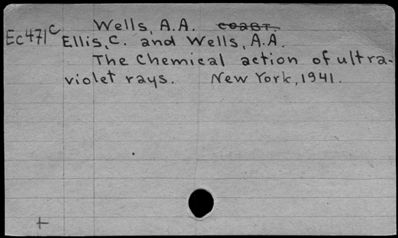 Wells, A.A.
Ec471c Ellis, C. and Wells, A.A.
The Chemical action of ultra-
violet rays. New York, 1941.
+